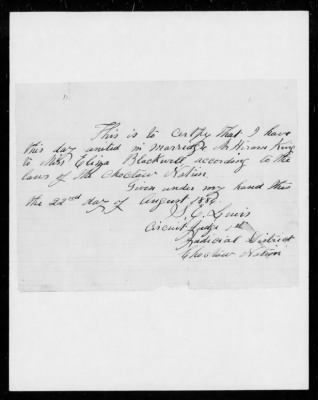 This is to certify that I have
this day united in marriage Mr Hiram King
to Mrs Eliza Blackwell according to the
laws of the Choctaw Nation.
Given under my hand this
the 22nd day of August 1886.
Lewis
Circuit Judge 1st
Judicial District
Choctaw Nation